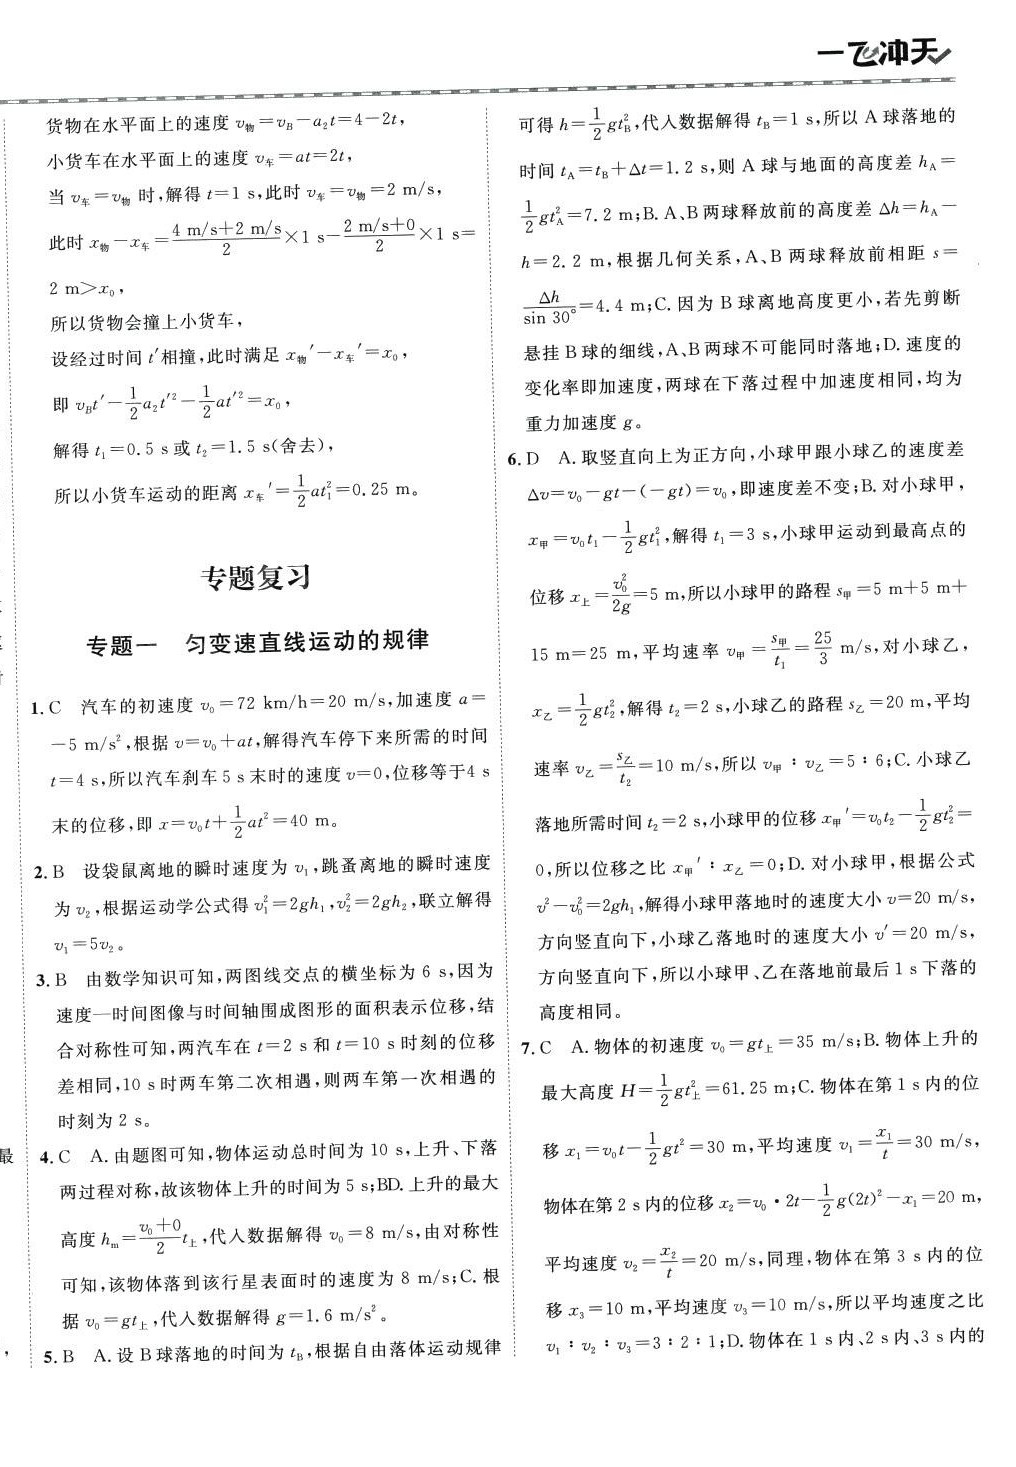 一飞冲天
货物在水平面上的速度 v物=vB-a₂t=4-2t,
小货车在水平面上的速度 v车=at=2t,
当 v车=v物 时,解得 t=1 s,此时 v车=v物=2 m/s,
此时 x物-x车=(4 m/s+2 m/s)/2×1 s-(2 m/s+0)/2×1 s=
2 m>x₀,
所以货物会撞上小货车,
设经过时间 t′相撞,此时满足 x物′-x车′=x₀,
即 vBt′-1/2a₂t′²-1/2at′²=x₀,
解得 t₁=0.5 s或 t₂=1.5 s(舍去),
所以小货车运动的距离 x车′=1/2at₁²=0.25 m。
专题复习
专题一 匀变速直线运动的规律
1.C 汽车的初速度 v₀=72 km/h=20 m/s,加速度 a=
-5 m/s²,根据 v=v₀+at,解得汽车停下来所需的时间
t=4 s,所以汽车刹车 5 s 末时的速度 v=0,位移等于4 s
末的位移,即 x=v₀t+1/2at²=40 m。
2.B 设袋鼠离地的瞬时速度为 v₁,跳蚤离地的瞬时速度
为 v₂,根据运动学公式得 v₁²=2gh₁,v₂²=2gh₂,联立解得
v₁=5v₂。
3.B 由数学知识可知,两图线交点的横坐标为 6 s,因为
速度—时间图像与时间轴围成图形的面积表示位移,结
合对称性可知,两汽车在 t=2 s 和 t=10 s 时刻的位移
差相同,10 s 时两车第二次相遇,则两车第一次相遇的
时刻为 2 s。
4.C A.由题图可知,物体运动总时间为 10 s,上升、下落
两过程对称,故该物体上升的时间为 5 s;BD.上升的最大
高度 hm=(v₀+0)/2t上,代入数据解得 v₀=8 m/s,由对称性
可知,该物体落到该行星表面时的速度为 8 m/s;C.根
据 v₀=gt上,代入数据解得 g=1.6 m/s²。
5.B A.设 B球落地的时间为 tB,根据自由落体运动规律
可得 h=1/2gtB²,代入数据解得 tB=1 s,所以 A 球落地的
时间 tA=tB+Δt=1.2 s,则 A 球与地面的高度差 hA=
1/2gtA²=7.2 m;B.A、B两球释放前的高度差 Δh=hA-
h=2.2 m,根据几何关系,A、B 两球释放前相距 s=
Δh/sin 30°=4.4 m;C.因为 B 球离地高度更小,若先剪断
悬挂 B球的细线,A、B两球不可能同时落地;D.速度的
变化率即加速度,两球在下落过程中加速度相同,均为
重力加速度 g。
6.D A.取竖直向上为正方向,小球甲跟小球乙的速度差
Δv=v₀-gt-(-gt)=v₀,即速度差不变;B.对小球甲,
x甲=v₀t₁-1/2gt₁²,解得 t₁=3 s,小球甲运动到最高点的
位移 x上=v₀²/2g=5 m,所以小球甲的路程 s甲=5 m+5 m+
15 m=25 m,平均速率 v甲=s甲/t₁=25/3 m/s,对小球乙,
x乙=1/2gt₂²,解得 t₂=2 s,小球乙的路程 s乙=20 m,平均
速率 v乙=s乙/t₂=10 m/s,所以 v甲∶v乙=5∶6;C.小球乙
落地所需时间 t₂=2 s,小球甲的位移 x甲′=v₀t₂-1/2gt₂²=
0,所以位移之比 x甲′∶x乙=0;D.对小球甲,根据公式
v²-v₀²=2gh₁,解得小球甲落地时的速度大小 v=20 m/s,
方向竖直向下,小球乙落地时的速度大小 v′=20 m/s,
方向竖直向下,所以小球甲、乙在落地前最后 1 s 下落的
高度相同。
7.C A.物体的初速度 v₀=gt上=35 m/s;B.物体上升的
最大高度 H=1/2gt上²=61.25 m;C.物体在第 1 s 内的位
移 x₁=v₀t-1/2gt²=30 m,平均速度 v₁=x₁/t=30 m/s,
物体在第 2 s 内的位移 x₂=v₀·2t-1/2g(2t)²-x₁=20 m,
平均速度 v₂=x₂/t=20 m/s,同理,物体在第 3 s 内的位
移 x₃=10 m,平均速度 v₃=10 m/s,所以平均速度之比
v₁∶v₂∶v₃=3∶2∶1;D.物体在 1 s 内、2 s 内、3 s 内的
最